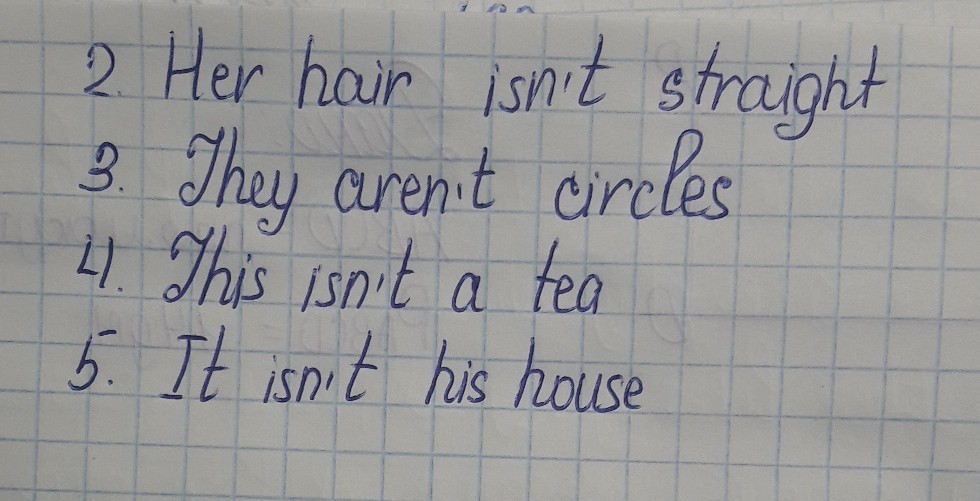 2. Her hair isn't straight
3. They aren't circles
4. This isn't a tea
5. It isn't his house